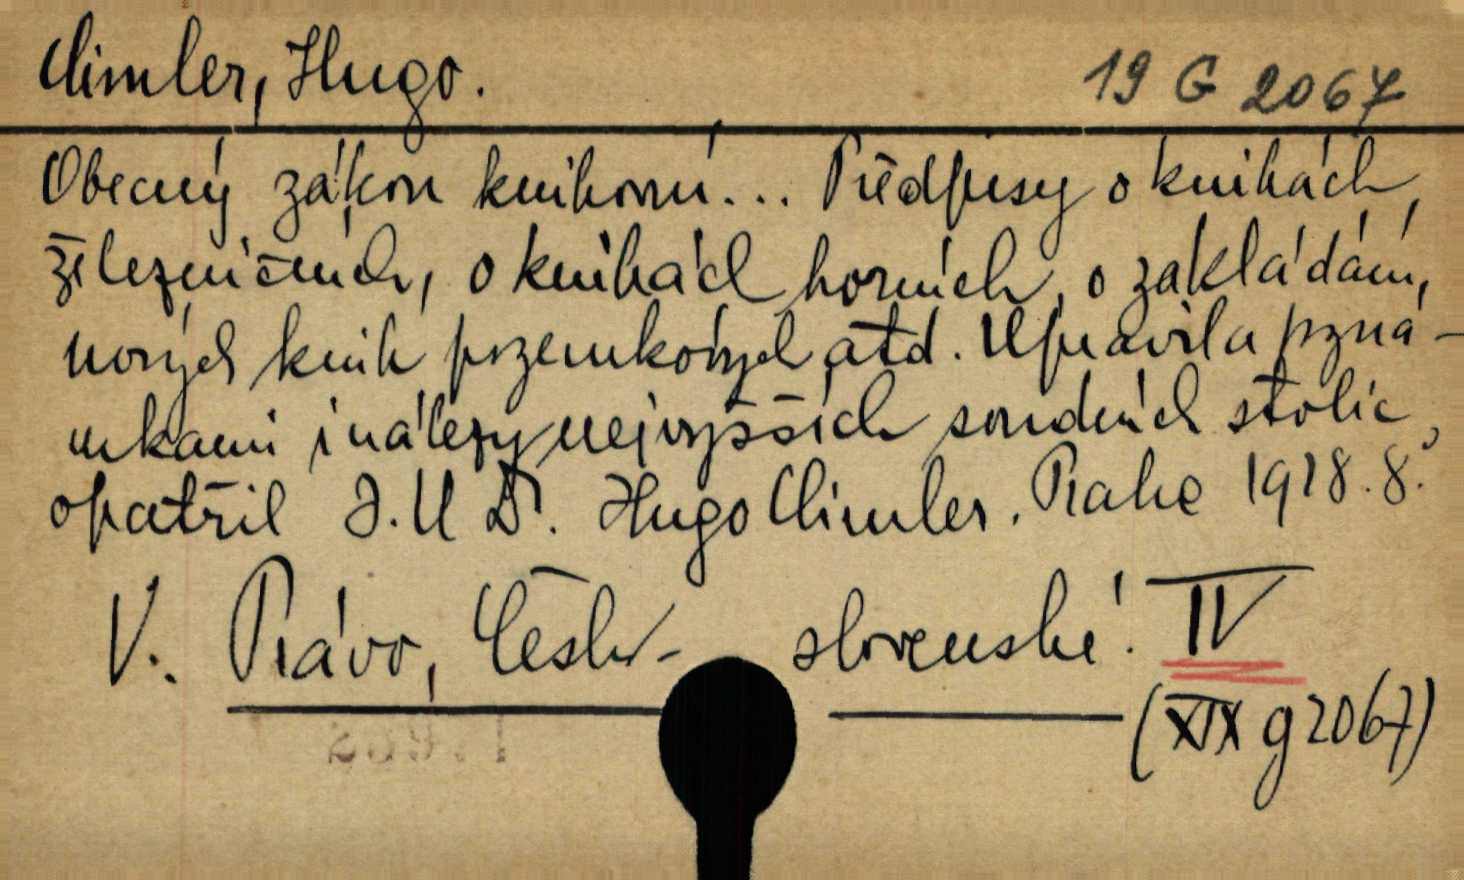 Climler, Hugo.
19 G 2067
Obecný zákon knihovní... Předpisy o knihách
železničních, o knihách horních, o zakládání
nových knih pozemkových atd. Upravila pozná-
mkami i nálezy nejvyšších soudních stolic
opatřil J. U Dr. Hugo Climler. Praha 1918. 8.°
V. Právo, Česko- slovenské. IV
(XIX g 2067)